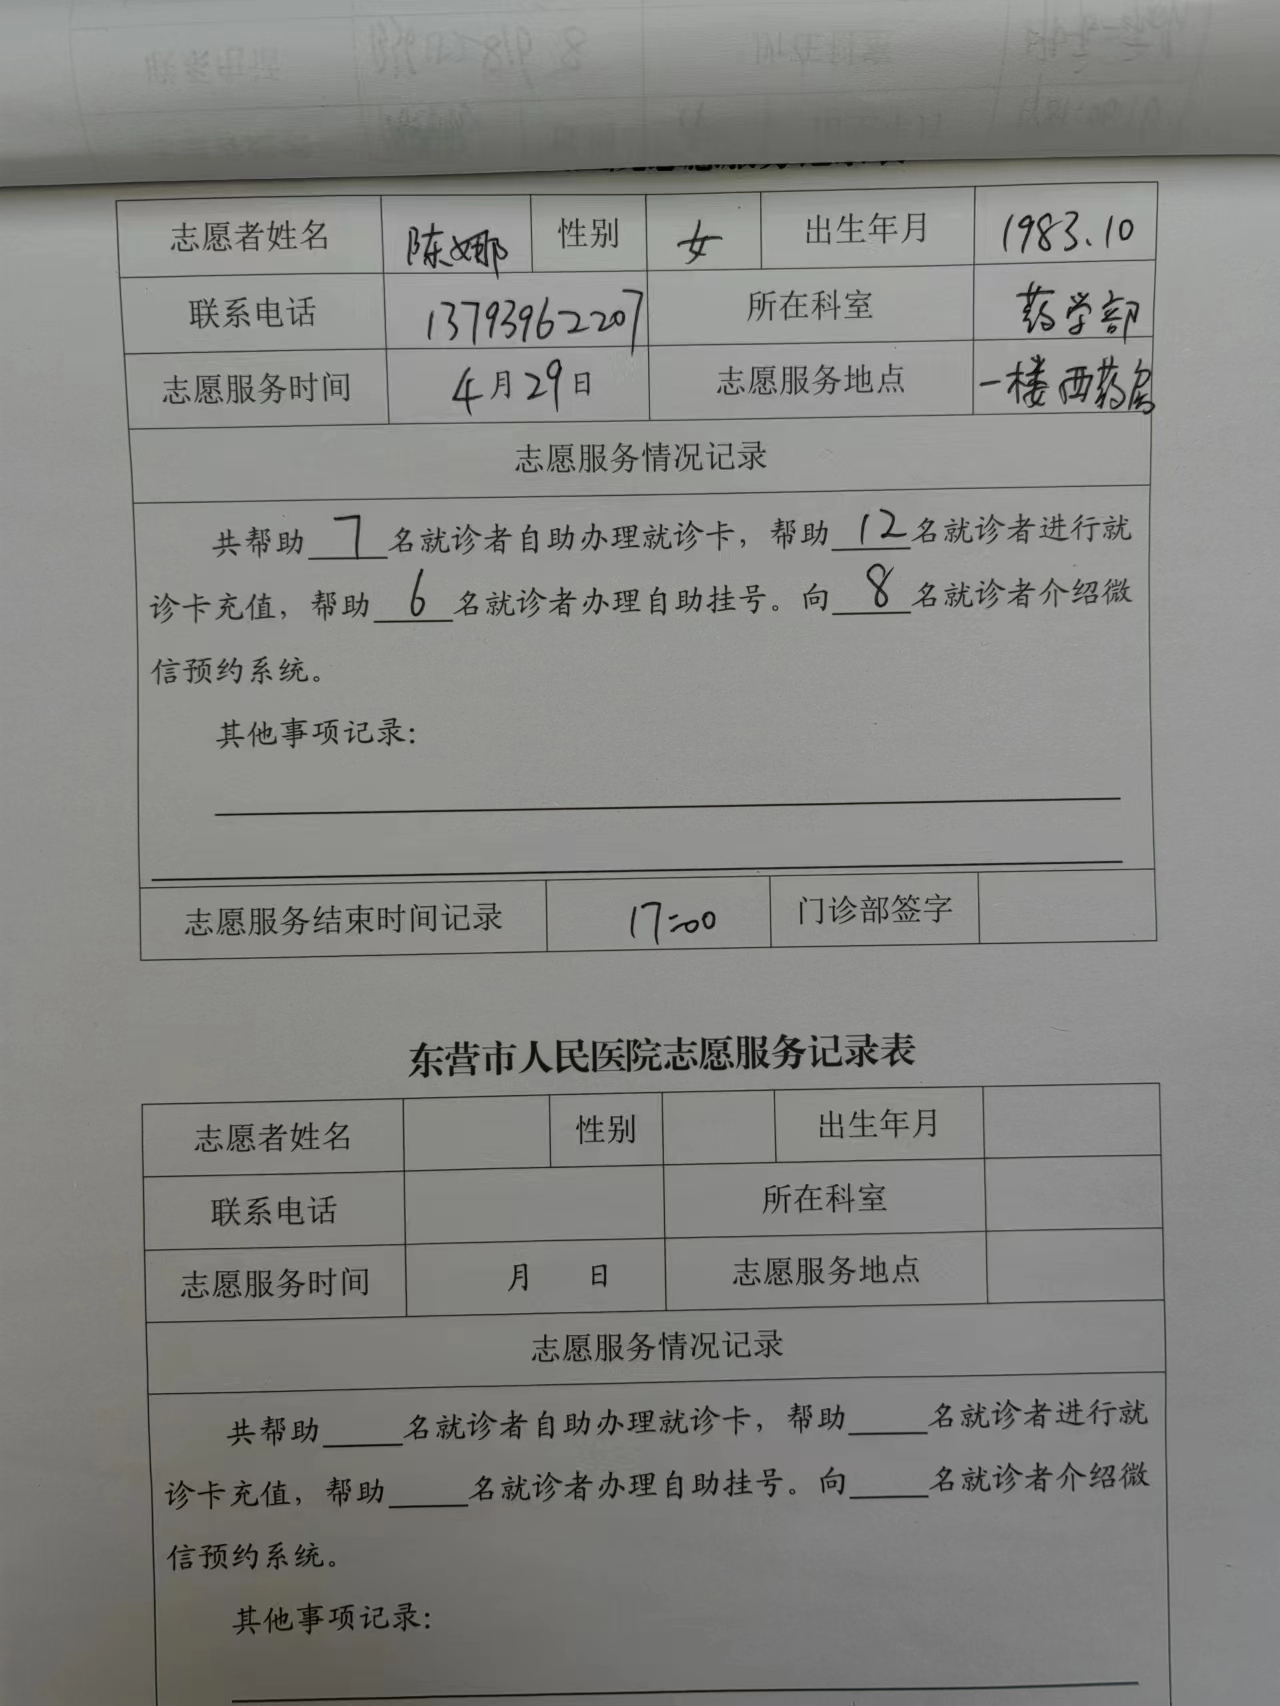 志愿服务记录表
志愿者姓名 陈娜 性别 女 出生年月 1983.10
联系电话 13793962207 所在科室 药学部
志愿服务时间 4月29日 志愿服务地点 一楼西药房
志愿服务情况记录
共帮助7名就诊者自助办理就诊卡，帮助12名就诊者进行就
诊卡充值，帮助6名就诊者办理自助挂号。向8名就诊者介绍微
信预约系统。
其他事项记录：
志愿服务结束时间记录 17:00 门诊部签字
东营市人民医院志愿服务记录表
志愿者姓名 性别 出生年月
联系电话 所在科室
志愿服务时间 月 日 志愿服务地点
志愿服务情况记录
共帮助_____名就诊者自助办理就诊卡，帮助_____名就诊者进行就
诊卡充值，帮助_____名就诊者办理自助挂号。向_____名就诊者介绍微
信预约系统。
其他事项记录：